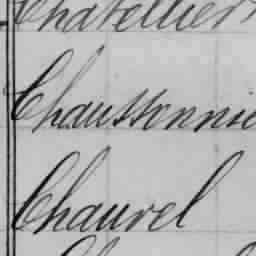 Chatellier
Chaussonnie
Chauvel